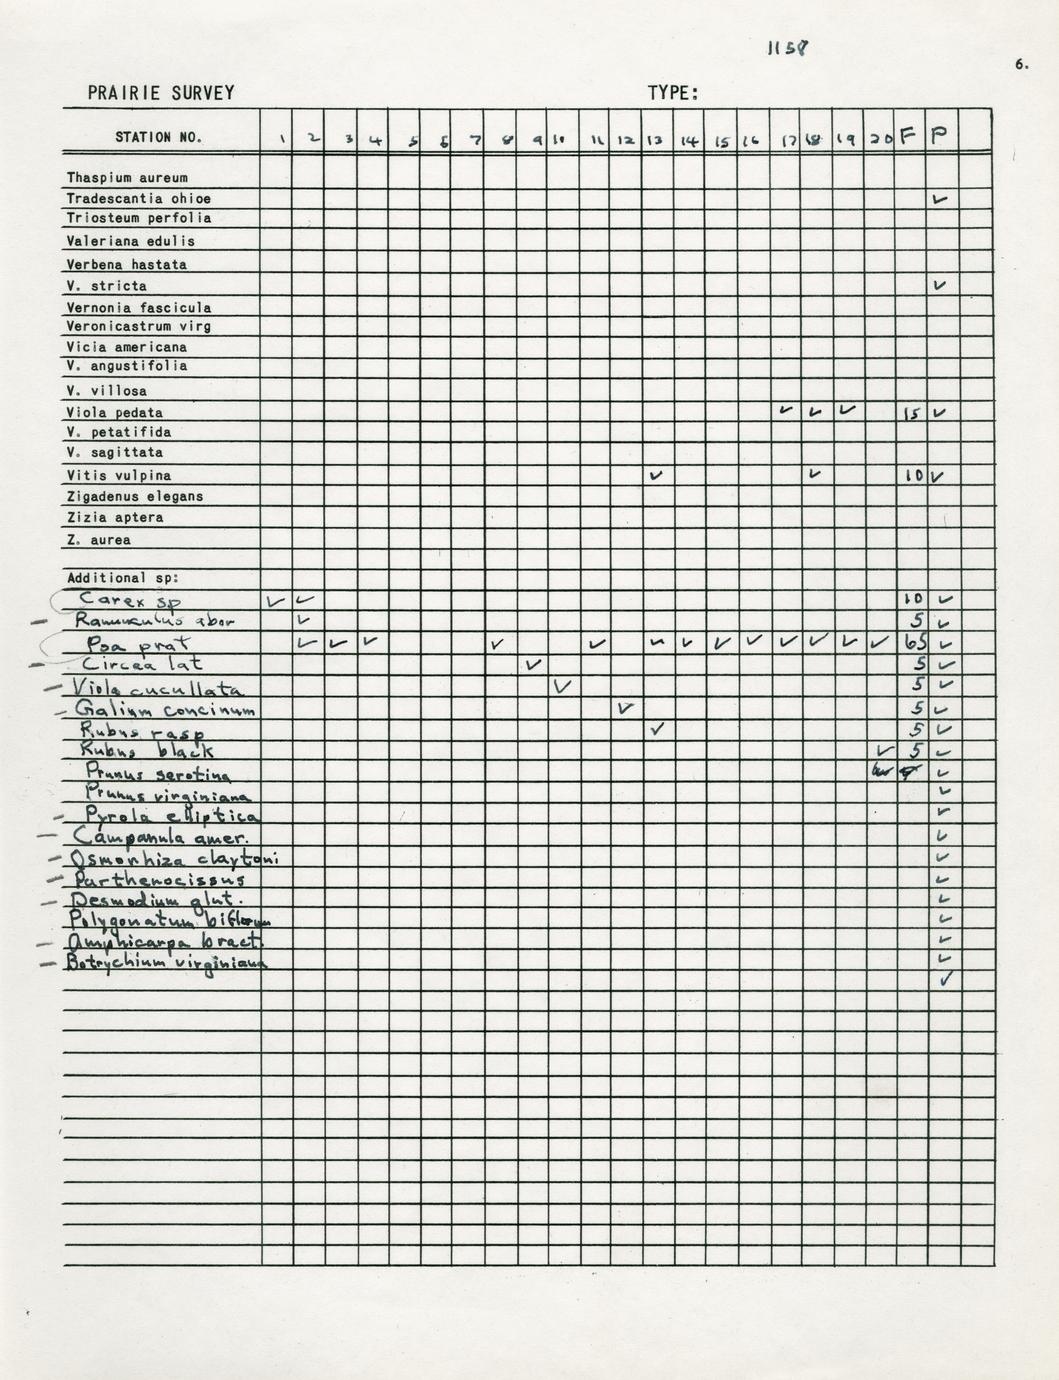 1158
6.
PRAIRIE SURVEY TYPE:
STATION NO. 1 2 3 4 5 6 7 8 9 10 11 12 13 14 15 16 17 18 19 20 F P
Thaspium aureum
Tradescantia ohioe ✓
Triosteum perfolia
Valeriana edulis
Verbena hastata
V. stricta ✓
Vernonia fascicula
Veronicastrum virg
Vicia americana
V. angustifolia
V. villosa
Viola pedata ✓ ✓ ✓ 15 ✓
V. petatifida
V. sagittata
Vitis vulpina ✓ ✓ 10 ✓
Zigadenus elegans
Zizia aptera
Z. aurea
Additional sp:
Carex sp ✓ ✓ 10 ✓
Ranunculus abor ✓ 5 ✓
Poa prat ✓ ✓ ✓ ✓ ✓ ✓ ✓ ✓ ✓ ✓ ✓ ✓ ✓ 65 ✓
Circea lat ✓ 5 ✓
Viola cucullata ✓ 5 ✓
Galium concinum ✓ 5 ✓
Rubus rasp ✓ 5 ✓
Rubus black ✓ 5 ✓
Prunus serotina ✓
Prunus virginiana ✓
Pyrola elliptica ✓
Campanula amer. ✓
Osmorhiza claytoni ✓
Parthenocissus ✓
Desmodium glut. ✓
Polygonatum biflorum ✓
Amphicarpa bract. ✓
Botrychium virginiana ✓
✓